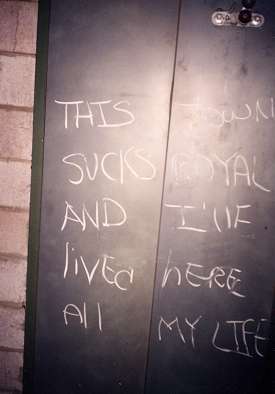 THIS TOWN
SUCKS ROYAL
AND I'VE
liVED hERE
All MY LIFE